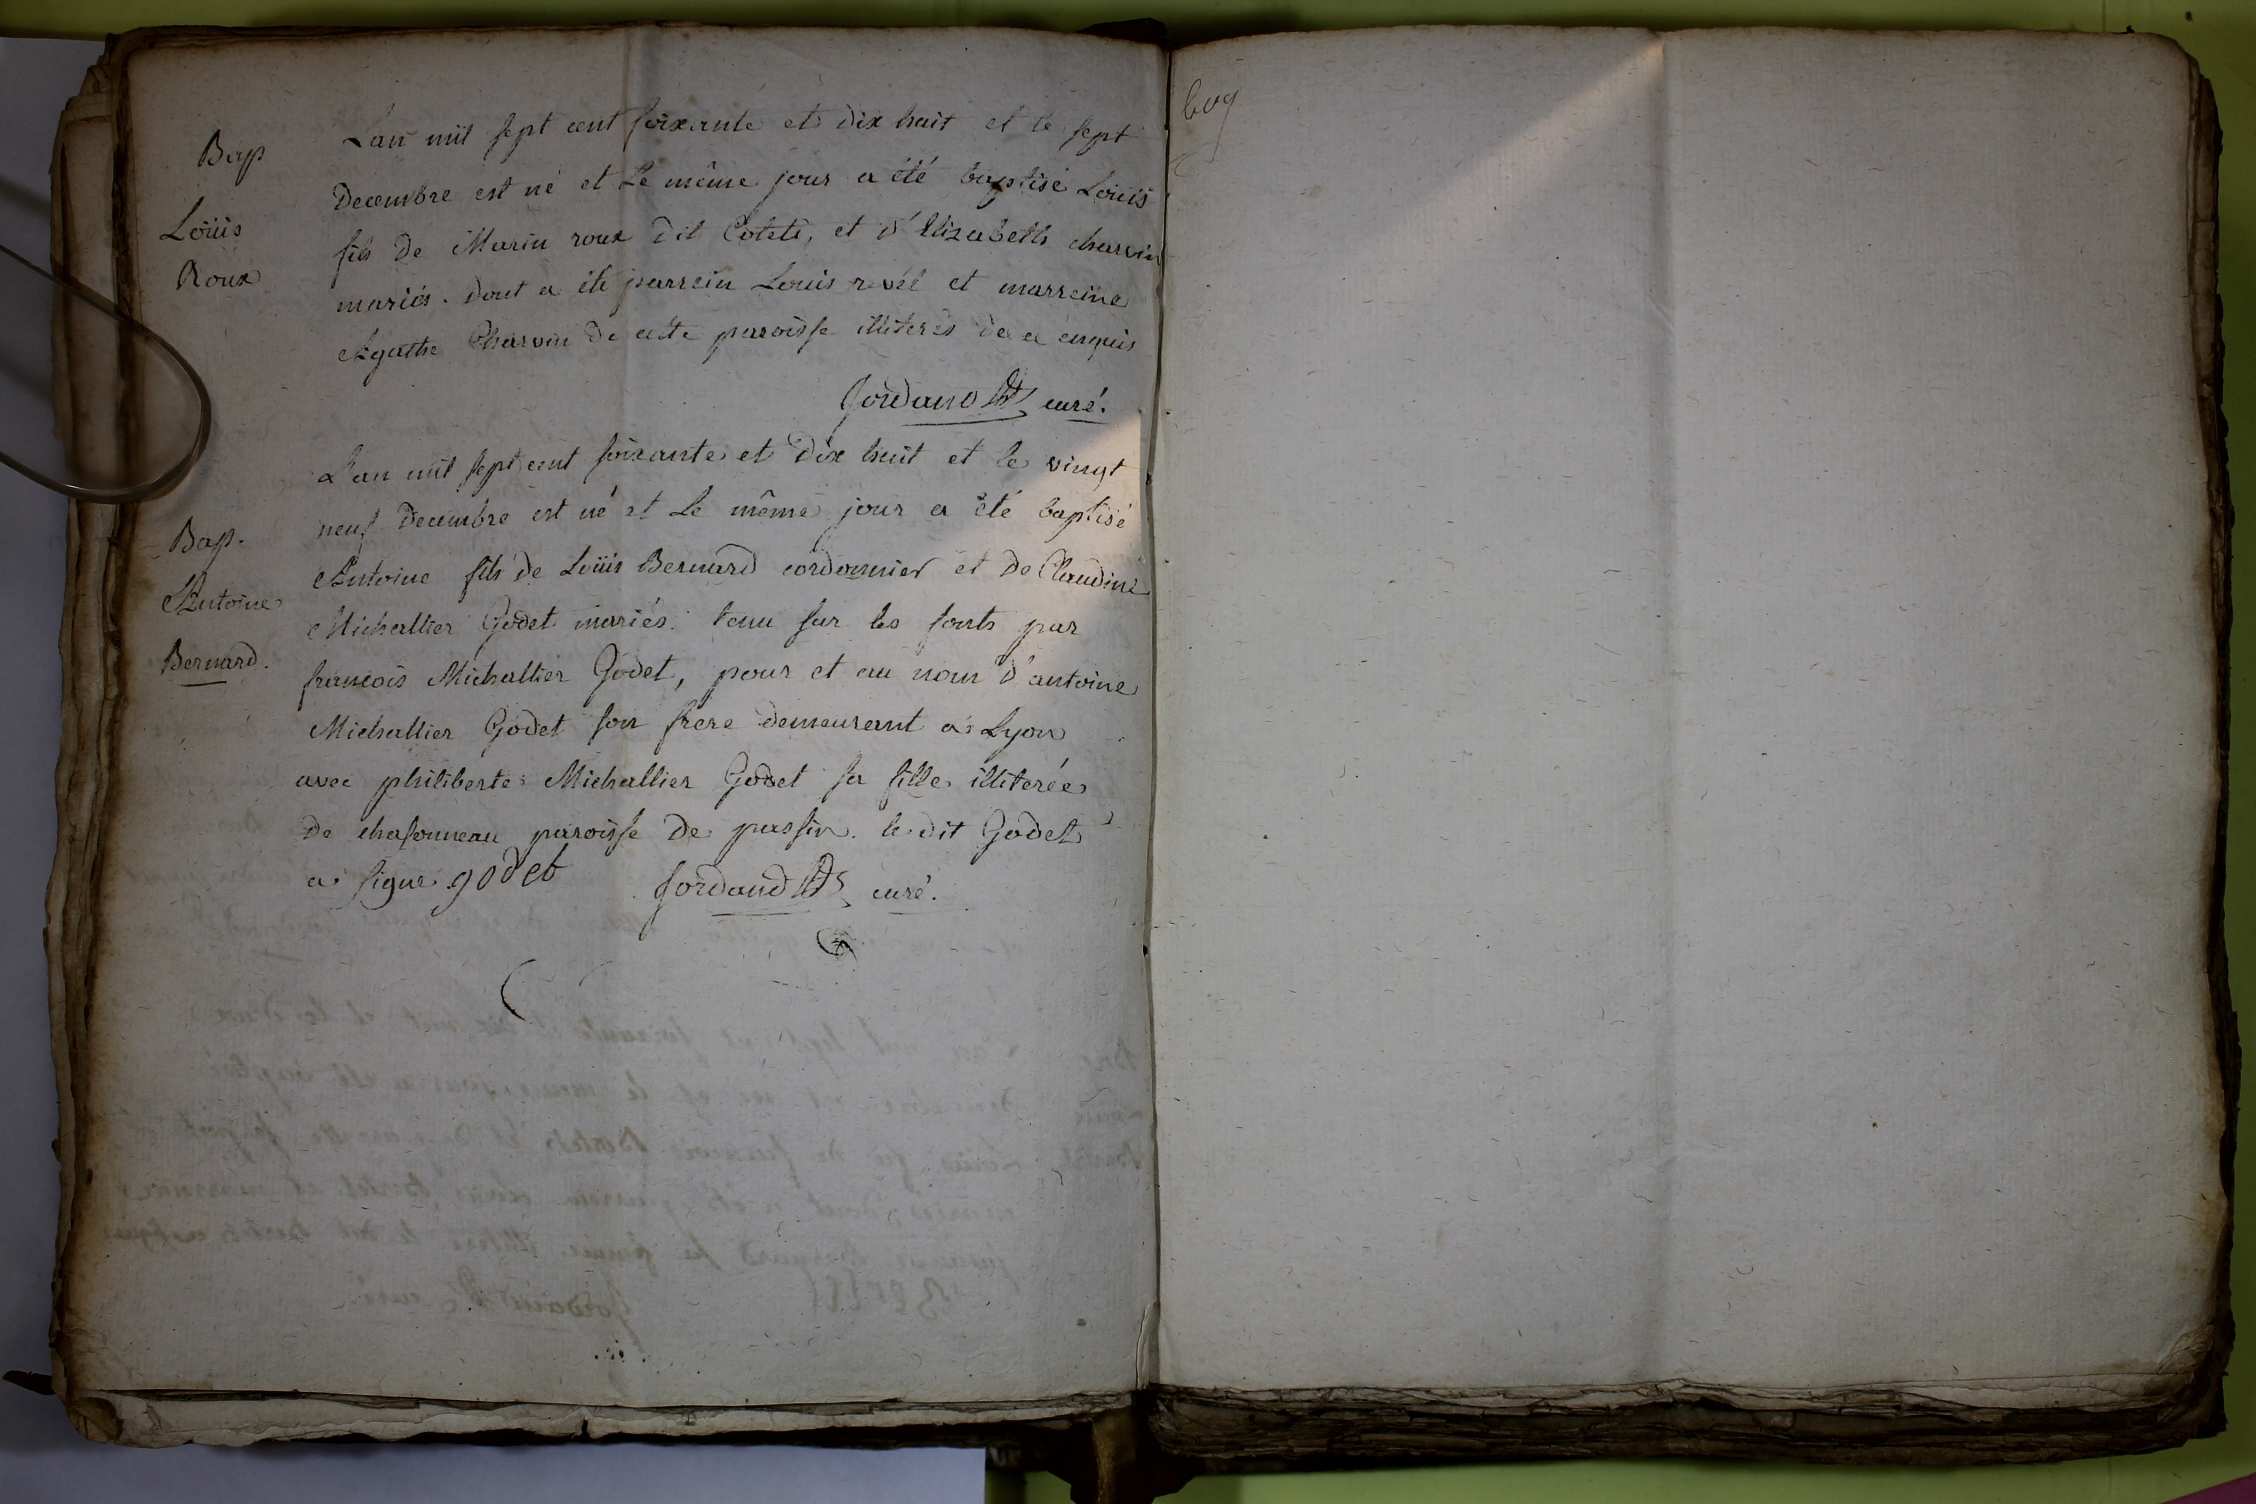 Bap
Loüis
Roux
Lan mil sept cent soixante et dix huit et le sept
Decembre est né et Le même jour a été baptisé Loüis
fils de Marin roux dit Coteti, et d'Elizabeth charvin
mariés. dont a été parrein Louis revél et marreine
Agathe Charvin de cette paroisse illiterés de ce enquis
Jordand curé.
Bap.
Antoine
Bernard.
L'an mil sept cent soixante et dix huit et le vingt
neuf Decembre est né et Le même jour a été baptisé
Antoine fils de Loüis Bernard cordonnier et de Claudine
Michallier Godet mariés. tenu sur les fonts par
francois Michallier Godet, pour et au nom d'antoine
Michallier Godet son frere demeurant a Lyon
avec philiberte Michallier Godet sa fille illiterée
de chasonneau paroisse de passin. le dit Godet
a signe godet Jordand curé.